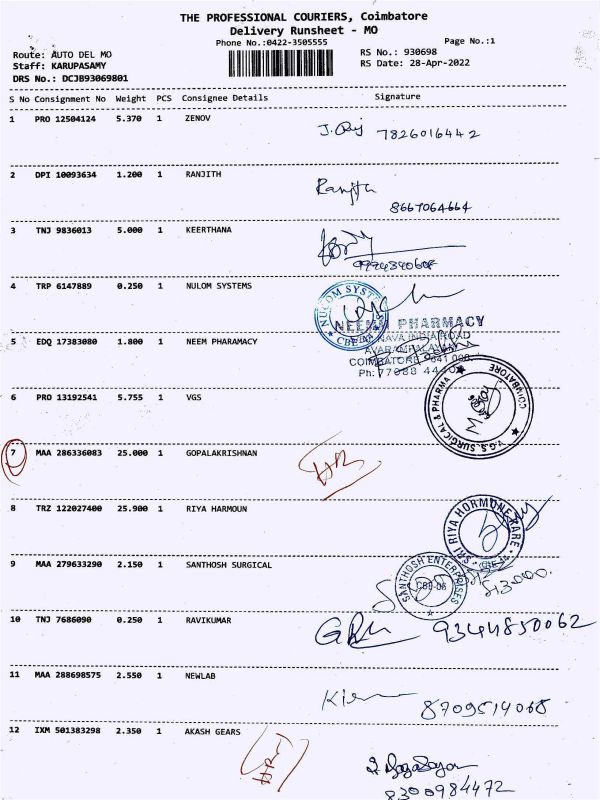 THE PROFESSIONAL COURIERS, Coimbatore
Delivery Runsheet - MO
Phone No.:0422-3505555
Page No.:1
Route: AUTO DEL MO
RS No.: 930698
Staff: KARUPASAMY
RS Date: 28-Apr-2022
DRS No.: DCJB93069801
S No Consignment No Weight PCS Consignee Details Signature
1 PRO 12504124 5.370 1 ZENOV
7826016442
2 DPI 10093634 1.200 1 RANJITH
Ranjith
8667064664
3 TNJ 9836013 5.000 1 KEERTHANA
4 TRP 6147889 0.250 1 NULOM SYSTEMS
NULOM SYSTEMS
CBE
5 EDQ 17383080 1.800 1 NEEM PHARAMACY
NEEM PHARMACY
NAVA INDIA ROAD
AVARAMPALAYAM
COIMBATORE 641 006
Ph: 77088 444
6 PRO 13192541 5.755 1 VGS
V.G.S. SURGICAL & PHARMA
COIMBATORE
7 MAA 286336083 25.000 1 GOPALAKRISHNAN
8 TRZ 122027400 25.900 1 RIYA HARMOUN
SRI RIYA HORMONE CARE
9 MAA 279633290 2.150 1 SANTHOSH SURGICAL
SANTHOSH ENTERPRISES
10 TNJ 7686090 0.250 1 RAVIKUMAR
9344850062
11 MAA 288698575 2.550 1 NEWLAB
8709514068
12 IXM 501383298 2.350 1 AKASH GEARS
8300984472